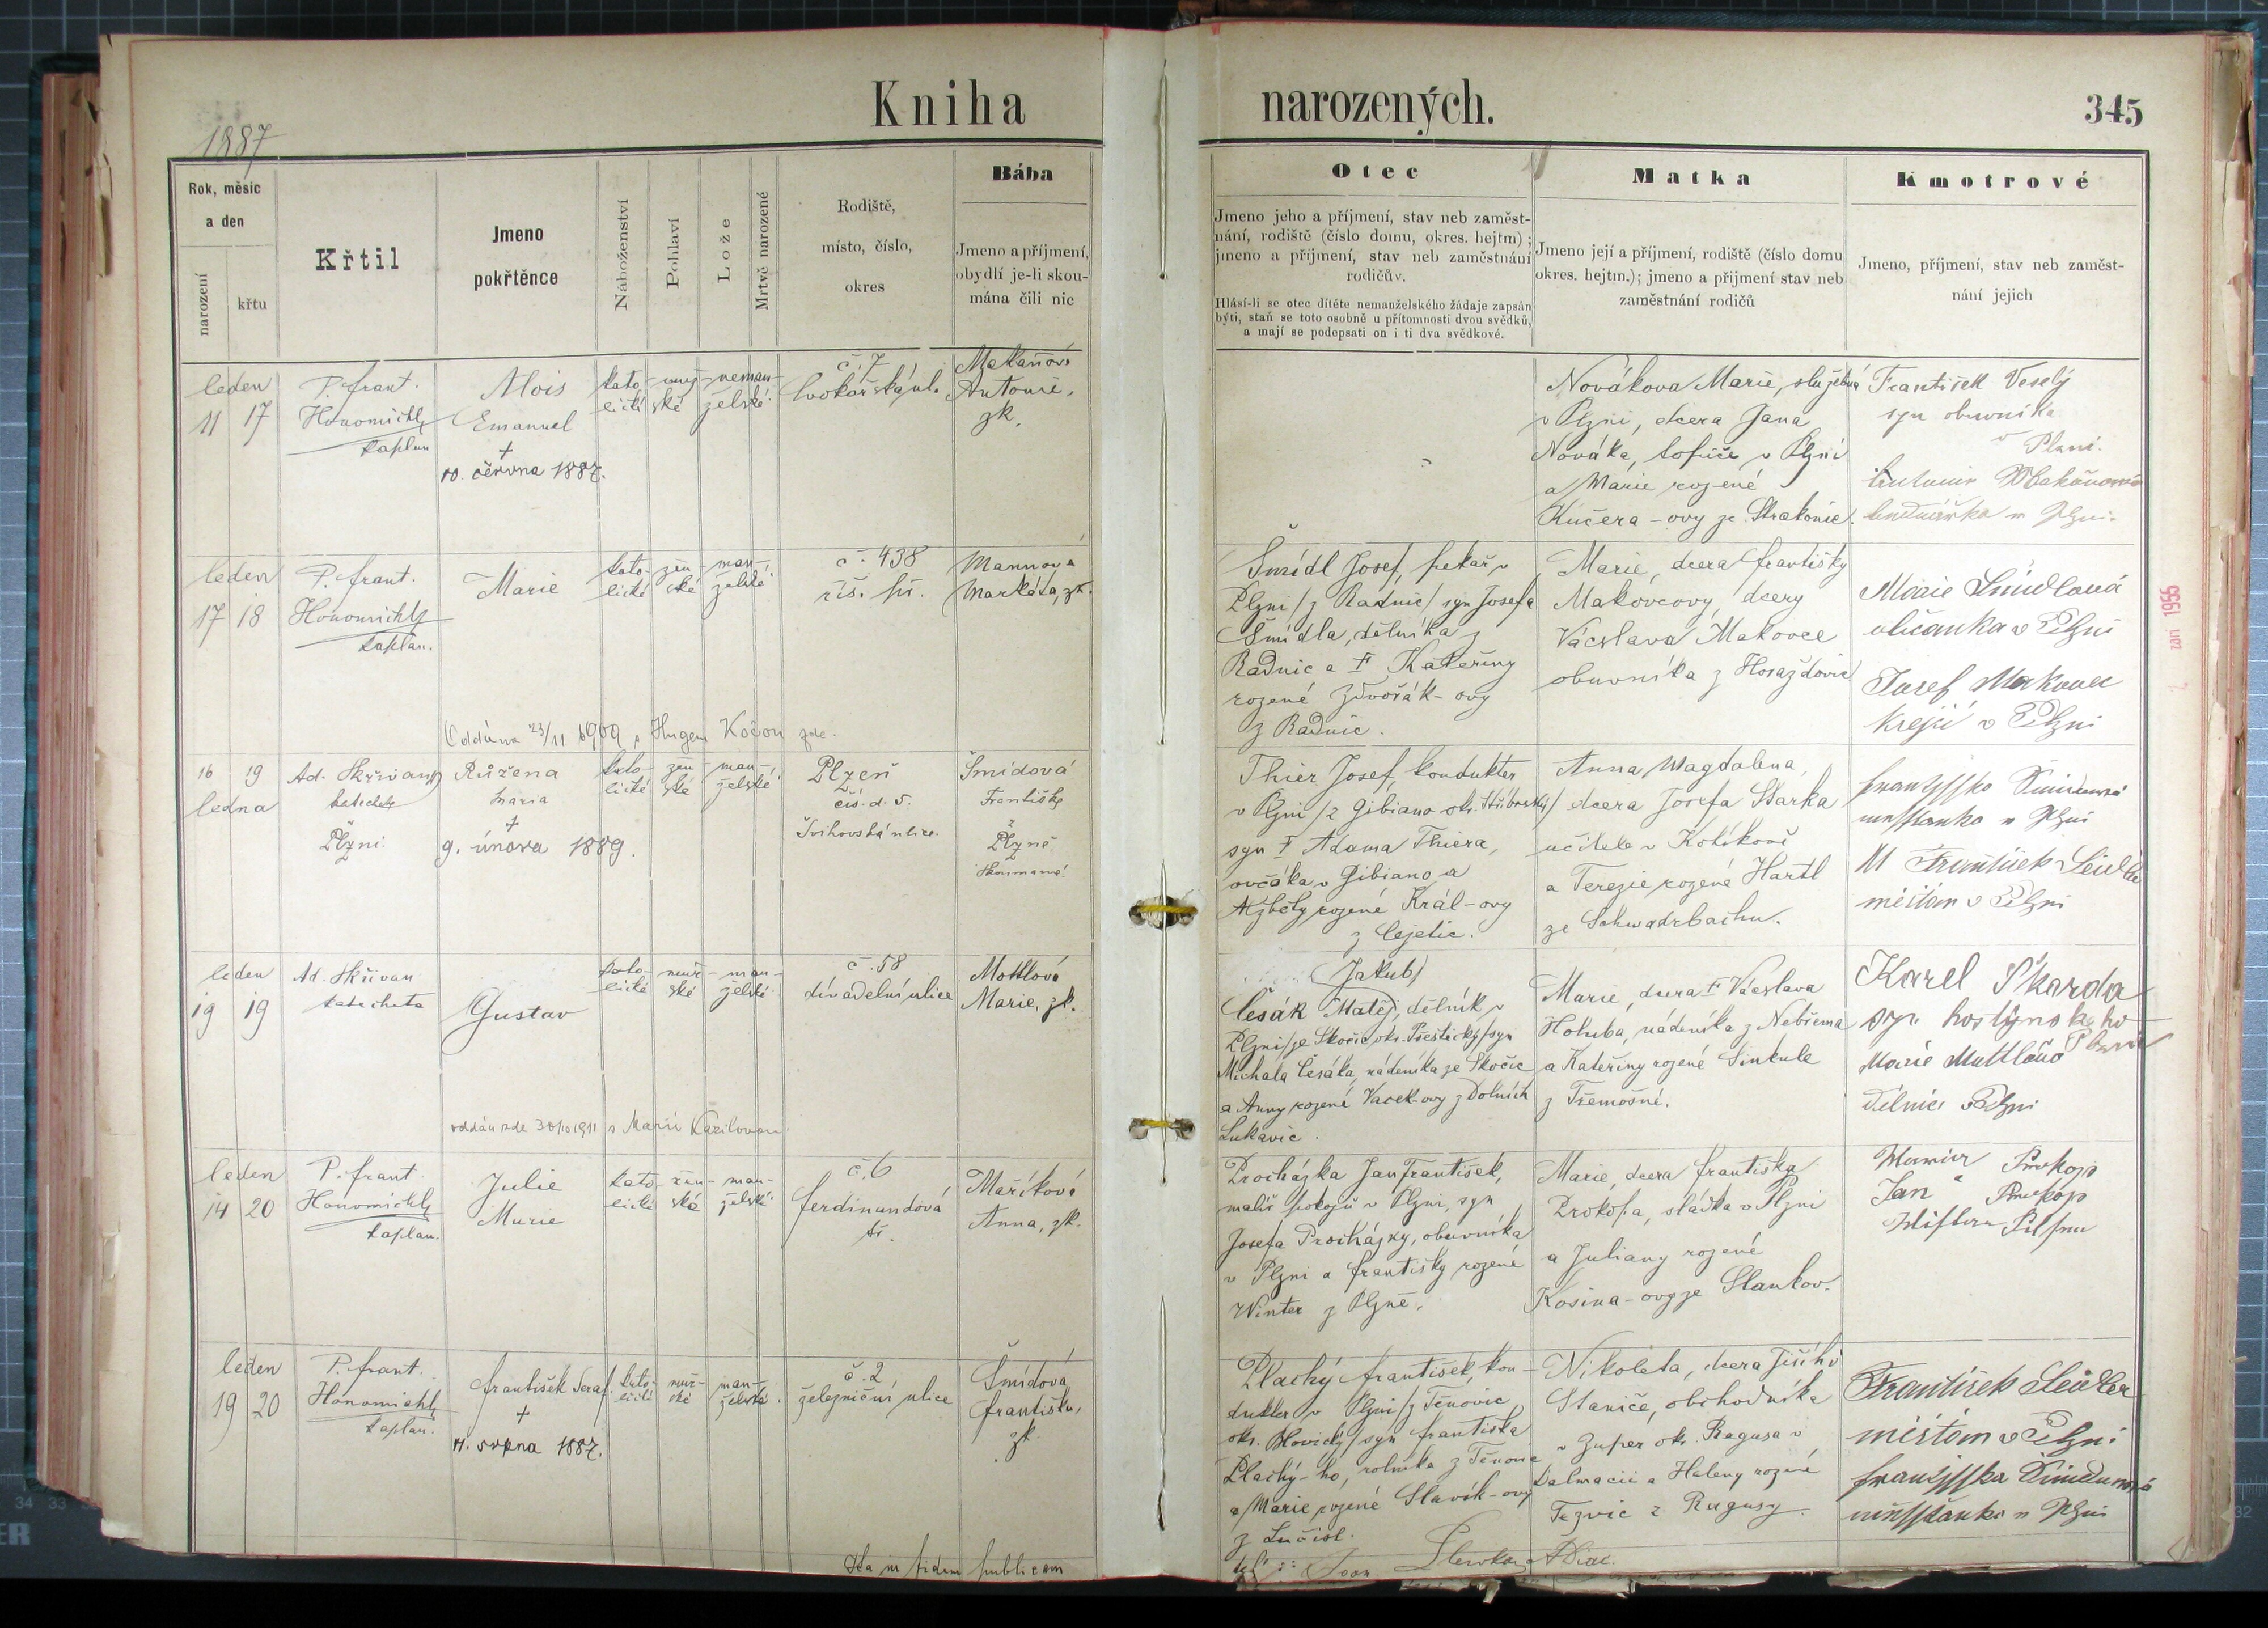 Kniha narozených.
345
1887
Rok, měsíc
a den
narození
křtu
Křtil
Jmeno
pokřtěnce
Náboženství
Pohlaví
Lože
Mrtvě narozené
Rodiště,
místo, číslo,
okres
Bába
Jmeno a příjmení,
obydlí je-li skou-
mána čili nic
Otec
Jmeno jeho a příjmení, stav neb zaměst-
nání, rodiště (číslo domu, okres. hejtm) ;
jmeno a příjmení, stav neb zaměstnání
rodičův.
Hlásí-li se otec dítěte nemanželského žádaje zapsán
býti, staň se toto osobně u přítomnosti dvou svědků,
a mají se podepsati on i ti dva svědkové.
Matka
Jmeno její a příjmení, rodiště (číslo domu
okres. hejtm.); jmeno a příjmení stav neb
zaměstnání rodičů
Kmotrové
Jmeno, příjmení, stav neb zaměst-
nání jejich
leden
11 17
P. Frant.
Honomichl
kaplan
Alois
Emanuel
+
10. června 1887.
kato-
lické
muž-
ské
neman-
želské
č. 7
Antonie,
zk.
Novákova Marie, služebná
v Plzni, dcera Jana
Nováka, topiče v Plzni
a Marie rozené
Kučera-ovy ze Strakonic.
František Veselý
syn obuvníka
v Plzni.
leden
17 18
P. Frant.
Honomichl
kaplan.
Marie
kato-
lické
žen-
ské
man-
želské
č. 438
říš. př.
Mannova
Markéta, zk.
Šmídl Josef, pekař v
Plzni /z Radnic/ syn Josefa
Šmídla, dělníka z
Radnic a † Kateřiny
rozené Zdvořák-ovy
z Radnic.
Marie, dcera Františky
Makovcovy, dcery
Václava Makovce
obuvníka z Horažďovic
Marie Šmidlová
občanka v Plzni
Josef Makovec
krejčí v Plzni
Oddána 23/11 1909 s Hugem Kočou zde.
16 19
ledna
Ad. Skřivan
katecheta
Plzni
Růžena
Maria
+
9. února 1889.
kato-
lické
žen-
ské
man-
želské
Plzeň
čís. d. 5.
Švihovská ulice.
Šmídová
Františka
Plzně
Skoumaná
Thier Josef, kondukter
v Plzni /z Gibiano okr. Stříbrský/
syn † Adama Thiera,
ovčáka v Gibiano a
Alžběty rozené Král-ovy
z Cejetic.
Anna Magdalena,
dcera Josefa Starka
učitele v Kotíkově
a Terezie rozené Hartl
ze Schwadrbachu.
měšťan v Plzni
leden
19 19
Ad. Skřivan
katecheta
Gustav
kato-
lické
muž-
ské
man-
želské
č. 58
divadelní ulice
Mottlová
Marie, zk.
(Jakub)
Česák Matěj, dělník v
Plzni /ze Skočic okr. Přeštický/ syn
Michala Česáka, nádeníka ze Skočic
a Anny rozené Vacek-ovy z Dolních
Lukavic.
Marie, dcera † Václava
Holuba, nádeníka z Nebřema
a Kateřiny rozené Sinkule
z Třemošné.
Karel Škarda
syn hostynskeho
Plzni
Marie Mottlová
oddán zde 30/10 1911 s Marií
leden
14 20
P. Frant.
Honomichl
kaplan.
Julie
Marie
kato-
lické
žen-
ská
man-
želské
č. 6
ferdinandová
tř.
Maříková
Anna, zk.
Procházka Jan František,
malíř pokojů v Plzni, syn
Josefa Procházky, obuvníka
v Plzni a Františky rozené
Winter z Plzně.
Marie, dcera Františka
Prokopa, sládka v Plzni
a Juliany rozené
Kosina-ovy ze Stankov.
Prokop
Jan Prokop
leden
19 20
P. Frant.
Honomichl
kaplan.
František Seraf.
+
11. srpna 1887.
kato-
lické
muž-
ské
man-
želské
č. 2
železniční ulice
Šmídová
Františka,
zk.
Plachý František, kon-
dukter v Plzni /z Těnovic
okr. Blovický/ syn Františka
Plachý-ho, rolníka z Těnovic
a Marie rozené Slavík-ovy
Nikoleta, dcera Jiřího
Staniče, obchodníka
v Zuper okr. Ragusa v
Dalmacii a Heleny rozené
Tezvic z Ragusy.
František Seidler
měšťan v Plzni